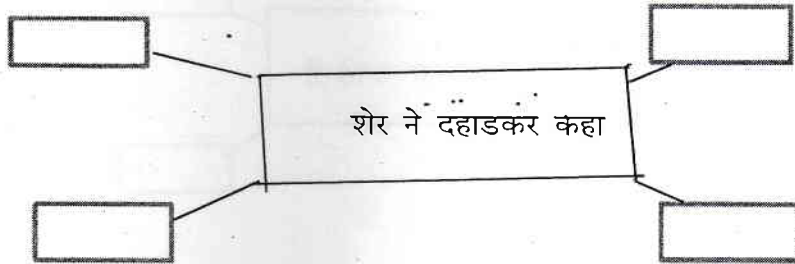 शेर ने दहाडकर कहा